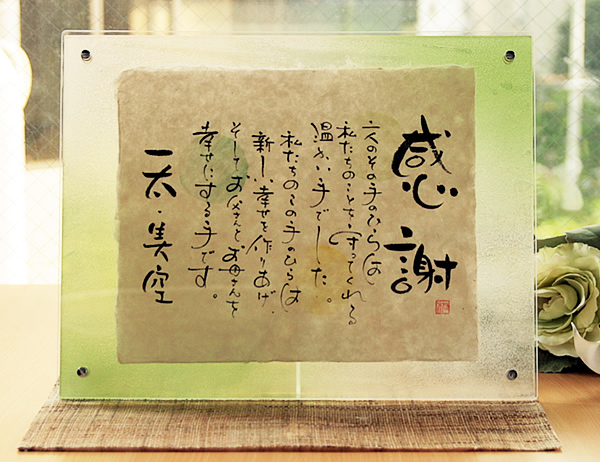 感謝
二人のその手のひらは
私たちのことを守ってくれる
温かい手でした。
私たちのこの手のひらは
新しい幸せを作りあげ、
そしてお父さんとお母さんを
幸せにする手です。
一太・美空